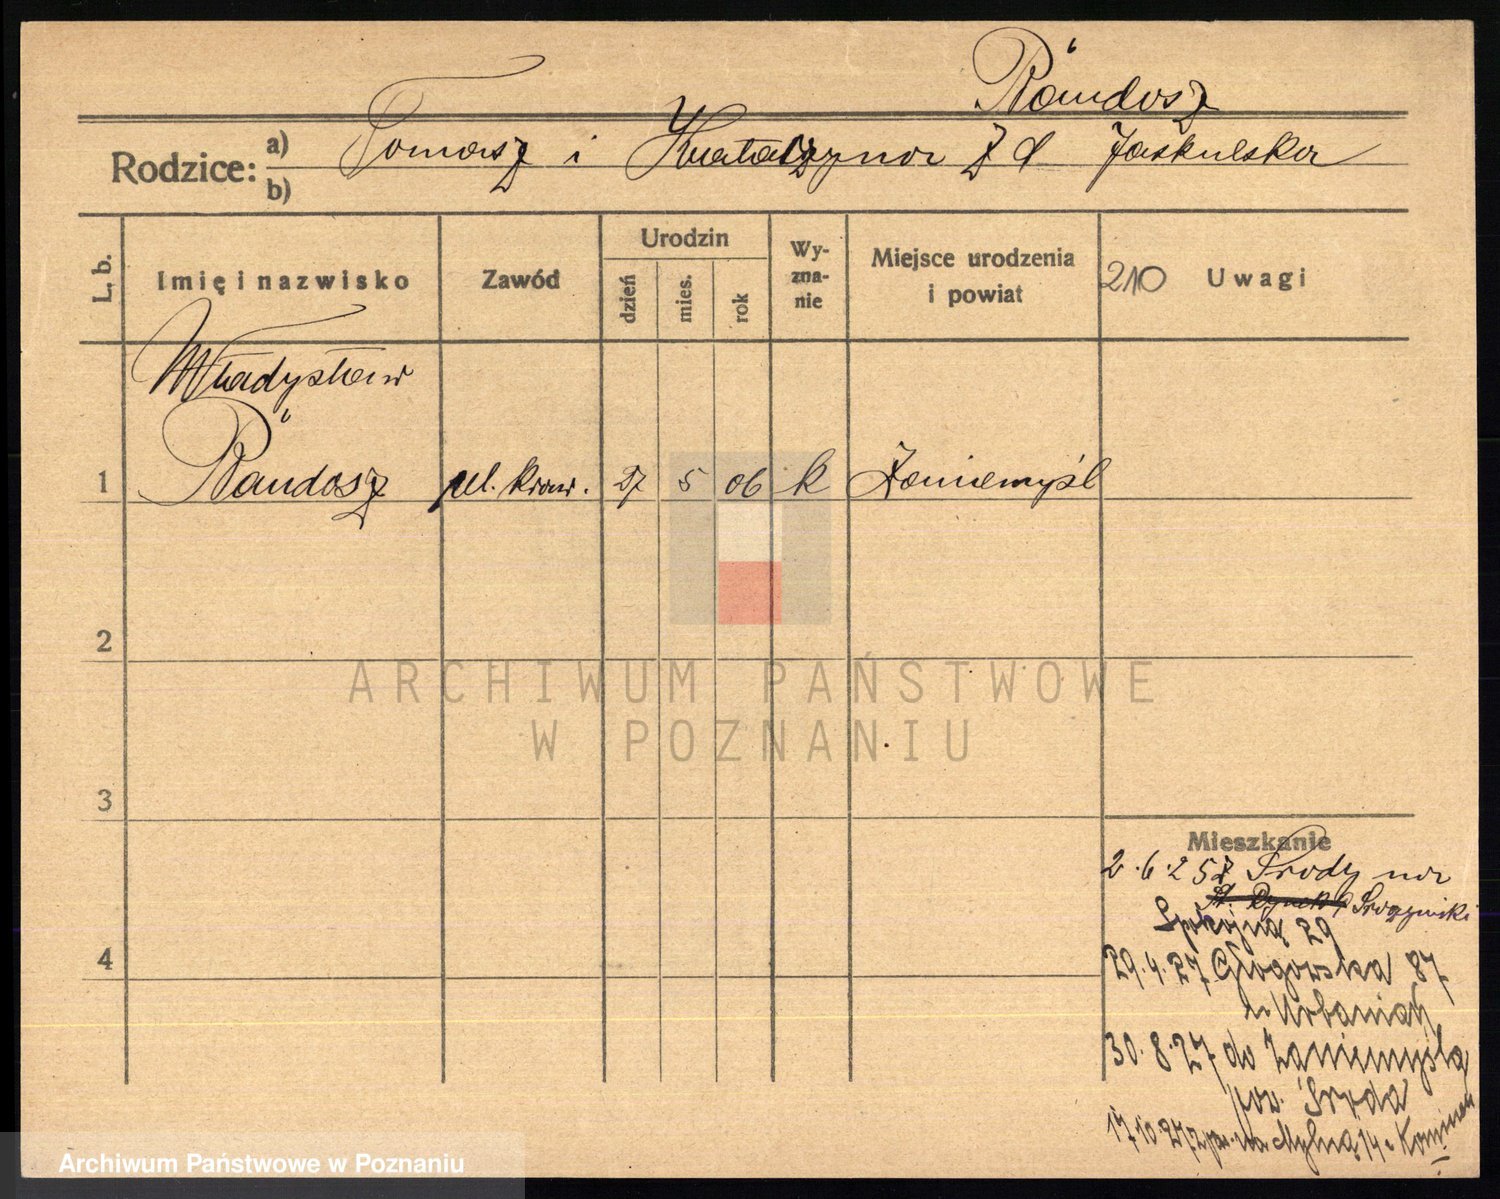 Rándosz
Rodzice: a) Tomasz i Katarzyna z d Jaskulska
b)
L. b.
Imię i nazwisko
Zawód
Urodzin
dzień
mies.
rok
Wy-
zna-
nie
Miejsce urodzenia
i powiat
210 Uwagi
Władysław
1 Rándosz
27 5 06 k Zaniemyśl
2
3
4
ARCHIWUM PAŃSTWOWE
W POZNANIU
Mieszkanie
2.6.25 z Środy na
St. Rynek
Spokojną 29
29.4.27 Głogowska 87
u Urbaniak
30.8.27 do Zaniemyśla
pow. Środa
17.10.27 z pow. na Mylną 14
Archiwum Państwowe w Poznaniu